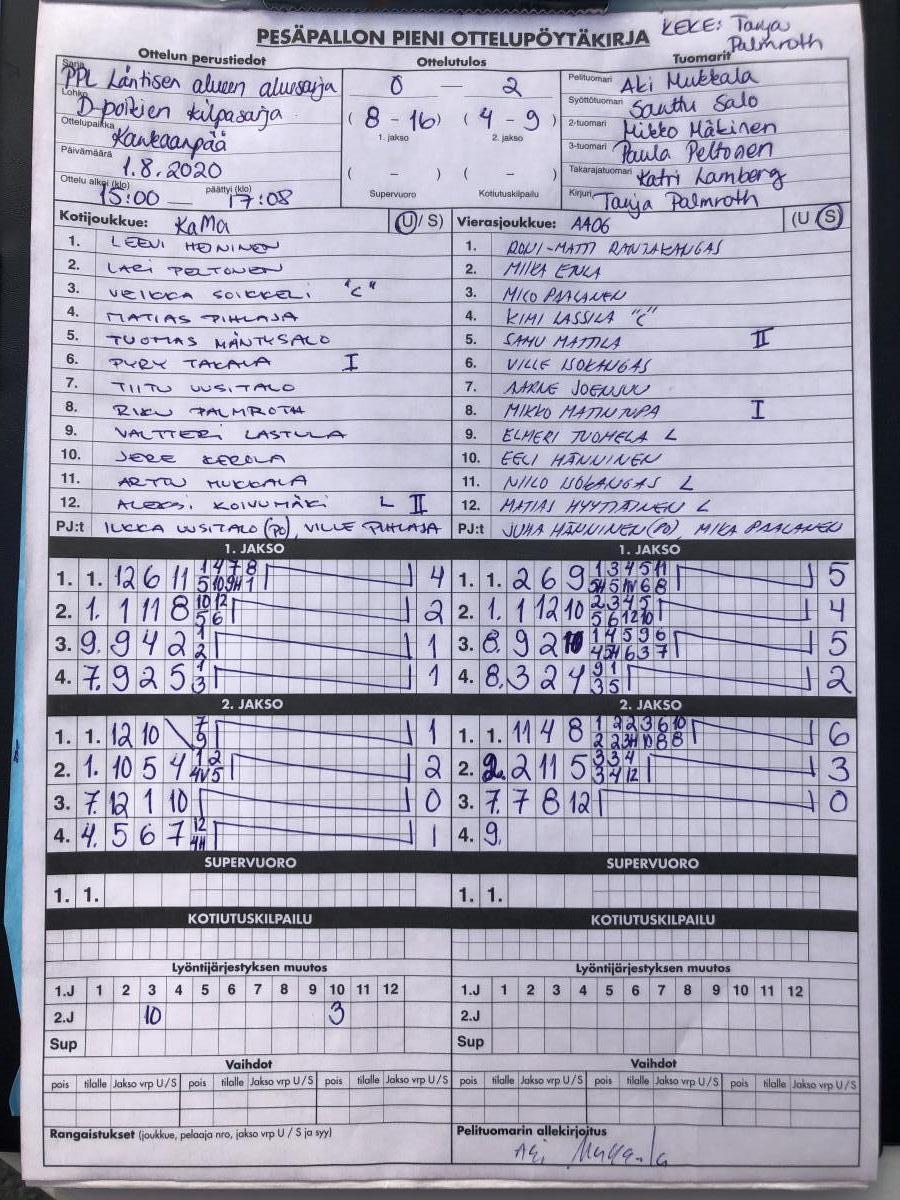 PESÄPALLON PIENI OTTELUPÖYTÄKIRJA
KEKE: Tanja Palmroth
Ottelun perustiedot
Ottelutulos
Tuomarit
Sarja PPL Läntisen alueen aluesarja
Lohko D-poikien kilpasarja
Ottelupaikka Kankaanpää
Päivämäärä 1.8.2020
Ottelu alkoi (klo) 15:00 päättyi (klo) 17:08
0 — 2
( 8 - 16 ) ( 4 - 9 )
1. jakso 2. jakso
( - ) ( - )
Supervuoro Kotiutuskilpailu
Pelituomari Aki Mukkala
Syöttötuomari Santtu Salo
2-tuomari Mikko Mäkinen
3-tuomari Paula Peltonen
Takarajatuomari Katri Lamberg
Kirjuri Tanja Palmroth
Kotijoukkue: KaMa (U/ S)
1. LEEVI HEININEN
2. LARI PELTONEN
3. VEIKKA SOIKKELI "C"
4. MATIAS PIHLAJA
5. TUOMAS MÄNTYSALO
6. PYRY TAKALA I
7. TIITU UUSITALO
8. RIKU PALMROTH
9. VALTTERI LASTULA
10. JERE KEROLA
11. ARTTU MUKKALA
12. ALEKSI KOIVUMÄKI L II
PJ:t ILKKA UUSITALO (PO), VILLE PIHLAJA
Vierasjoukkue: AA06 (U / S)
1. RONI-MATTI RANTAKANGAS
2. MIIKA
3. MICO PAALANEN
4. KIMI LASSILA "C"
5. SAMU MATTILA II
6. VILLE ISOKANGAS
7. AARNE JOENSUU
8. MIKKO MATINTUPA I
9. ELMERI TUOMELA L
10. EELI HÄNNINEN
11. NIILO ISOKANGAS L
12. MATIAS HYYTIÄINEN L
PJ:t JUHA HÄNNINEN (PO), MIKA PAALANEN
1. JAKSO
1. 1. 12 6 11 1 4 7 8 4
5 10 9H 1
2. 1. 1 11 8 10 12 2
5 6
3. 9. 9 4 2 1 1
2
4. 7. 9 2 5 1 1
3
1. JAKSO
1. 1. 2 6 9 1 3 4 5 11 5
5H 5 1V 6 8
2. 1. 1 12 10 2 3 4 5 4
5 6 12 10
3. 8. 9 2 10 1 4 5 9 6 5
4 5H 6 3 7
4. 8. 3 2 4 9 1 2
3 5
2. JAKSO
1. 1. 12 10 7 1
9
2. 1. 10 5 4 1 2 2
4V 5
3. 7. 12 1 10 0
4. 4. 5 6 7 12 1
4H
2. JAKSO
1. 1. 11 4 8 1 2 2 3 6 10 6
2 2 3H 10 8 8
2. 2. 2 11 5 3 3 4 3
3 4 12
3. 7. 7 8 12 0
4. 9.
SUPERVUORO
1. 1.
SUPERVUORO
1. 1.
KOTIUTUSKILPAILU
KOTIUTUSKILPAILU
Lyöntijärjestyksen muutos
1.J 1 2 3 4 5 6 7 8 9 10 11 12
2.J 10 3
Sup
Lyöntijärjestyksen muutos
1.J 1 2 3 4 5 6 7 8 9 10 11 12
2.J
Sup
Vaihdot
pois tilalle Jakso vrp U / S pois tilalle Jakso vrp U / S pois tilalle Jakso vrp U / S
Vaihdot
pois tilalle Jakso vrp U / S pois tilalle Jakso vrp U / S pois tilalle Jakso vrp U / S
Rangaistukset (joukkue, pelaaja nro, jakso vrp U / S ja syy)
Pelituomarin allekirjoitus
Aki Mukkala